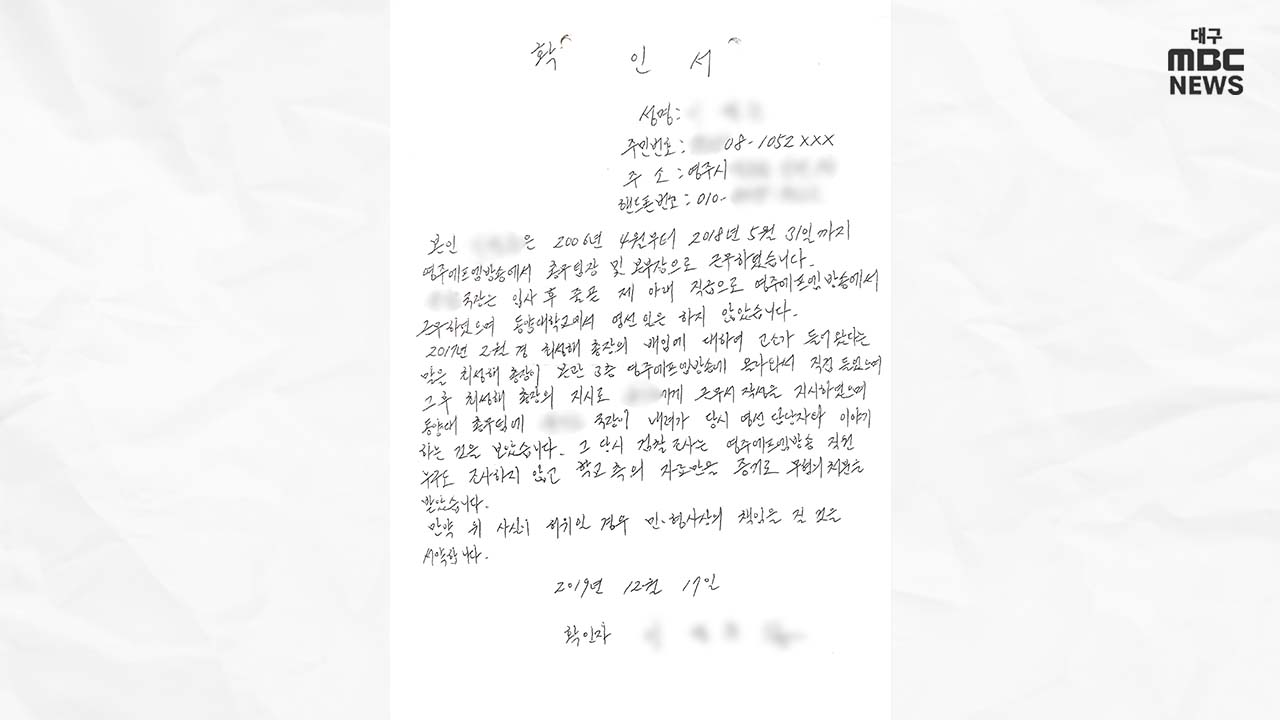 대구
MBC
NEWS
확 인 서
성명:
주민번호: 08-1052XXX
주 소: 영주시
핸드폰번호: 010-
본인 은 2006년 4월부터 2018년 5월 31일까지
영주에프엠방송에서 총무팀장 및 본부장으로 근무하였습니다.
국장는 입사 후 줄곧 제 아래 직급으로 영주에프엠방송에서
근무하였으며 동양대학교에서 영선 일은 하지 않았습니다.
2017년 2월 경 최성해 총장의 배임에 대하여 고소가 들어왔다는
말은 최성해 총장이 본관 3층 영주에프엠방송에 올라와서 직접 들었으며
그 후 최성해 총장의 지시로 에게 근무서 작성을 지시하였으며
동양대 총무팀에 국장이 내려가 당시 영선 담당자와 이야기
하는 것은 보았습니다. 그 당시 검찰 조사는 영주에프엠방송 직원
누구도 조사하지 않고 학교 측의 자료만을 증거로 무혐의 처분을
받았습니다.
만약 위 사실이 허위인 경우 민·형사상의 책임을 질 것을
서약합니다.
2019년 12월 17일
확인자